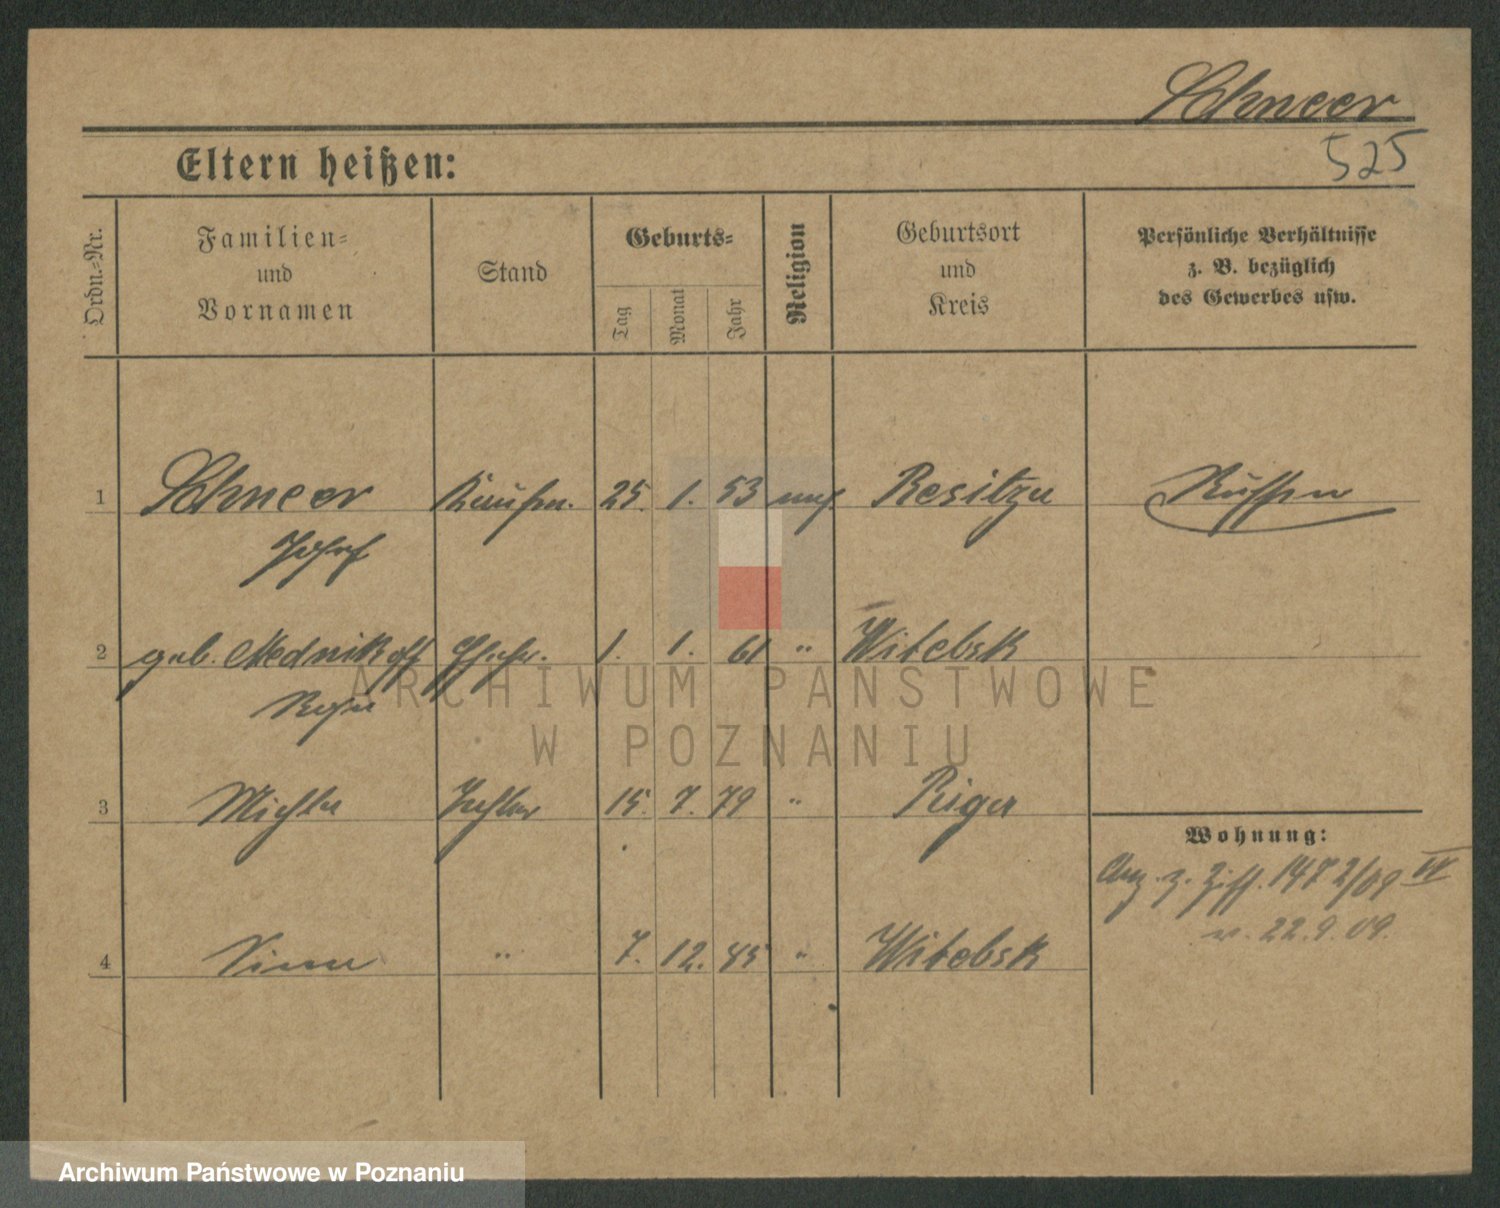 Schneer
525
Eltern heißen:
Ordn.-Nr.
Familien-
und
Vornamen
Stand
Geburts-
Tag
Monat
Jahr
Religion
Geburtsort
und
Kreis
Persönliche Verhältnisse
z. B. bezüglich
des Gewerbes usw.
1 Schneer Kaufm. 25. 1. 53 mos. Resitza Russen
Josef
2 geb. Mednikoff Ehefr. 1. 1. 61 " Witebsk
Rosa
3 Tochter 15. 7. 79 " Riga
Wohnung:
z. Ziff. 1472/09 IV
v. 22.9.09.
4 " 7. 12. 85 " Witebsk
ARCHIWUM PAŃSTWOWE
W POZNANIU
Archiwum Państwowe w Poznaniu